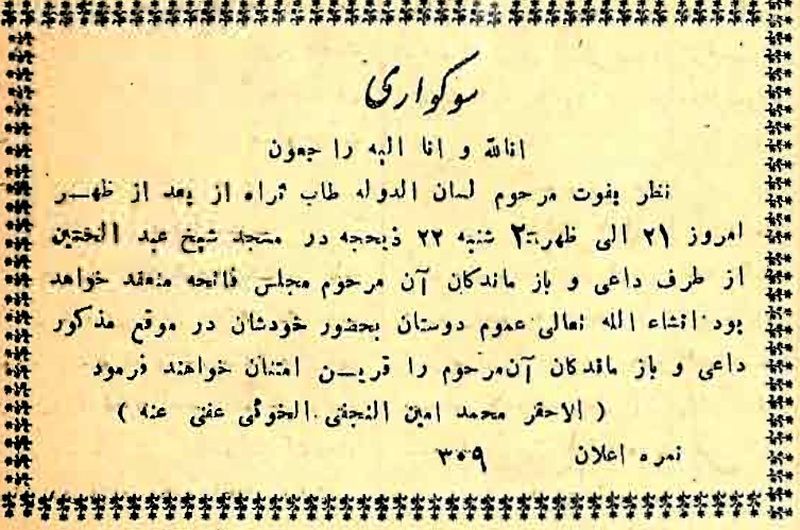 سوکواری
انالله و انا الیه راجعون
نظر بفوت مرحوم لسان الدوله طاب ثراه از بعد از ظهر
امروز ۲۱ الی ظهر ۲ شنبه ۲۲ ذیحجه در مسجد شیخ عبد الحسین
از طرف داعی و باز ماندکان آن مرحوم مجلس فاتحه منعقد خواهد
بود انشاء الله تعالی عموم دوستان بحضور خودشان در موقع مذکور
داعی و باز ماندکان آن‌مرحوم را قرین امتنان خواهند فرمود
( الاحقر محمد امین النجفی الخوئی عفی عنه )
نمره اعلان ۳۰۹